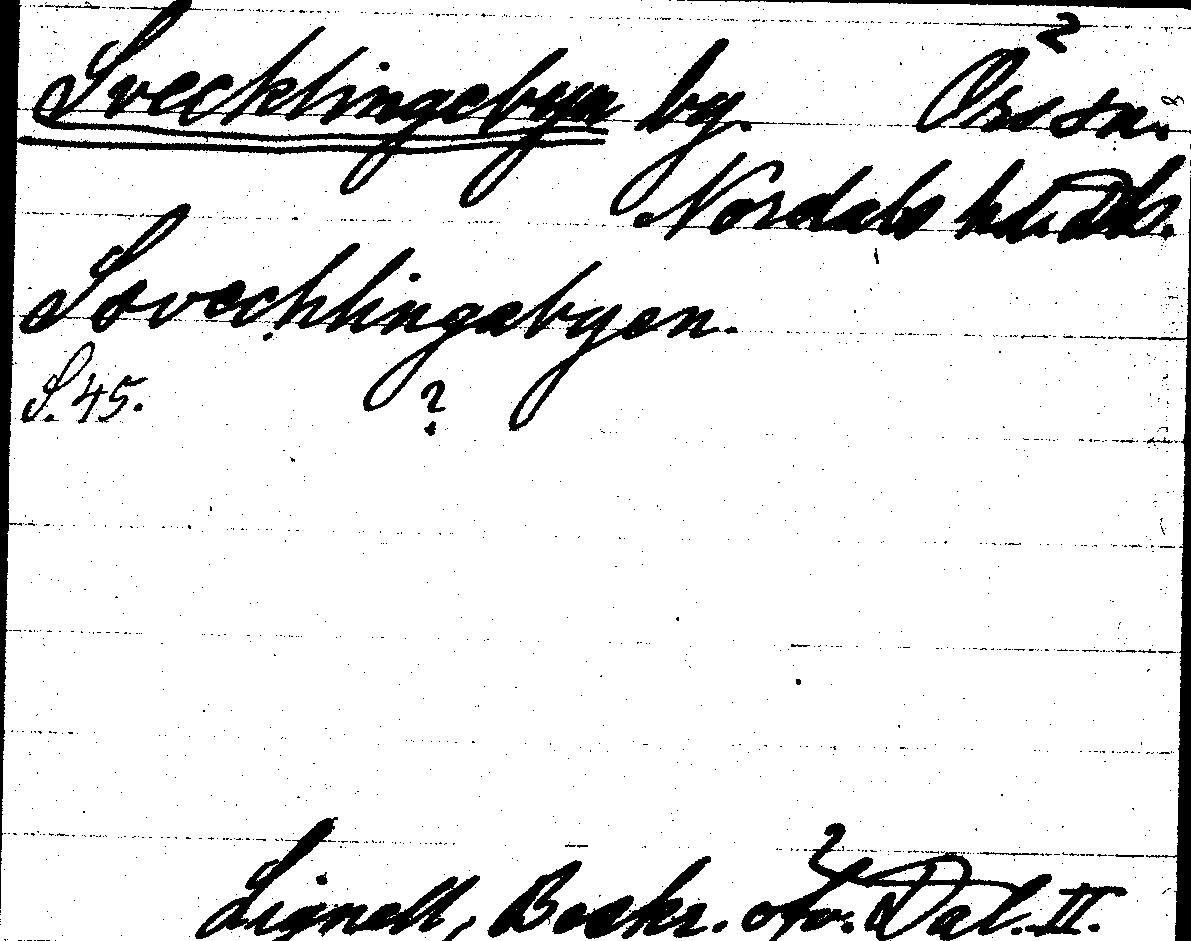 Svecklingebyn by. Örs sn.
Nordals hd. Dls.
Sovechlingebyen.
S. 45. ?
Lignell, Beskr. öfv. Dal. II.